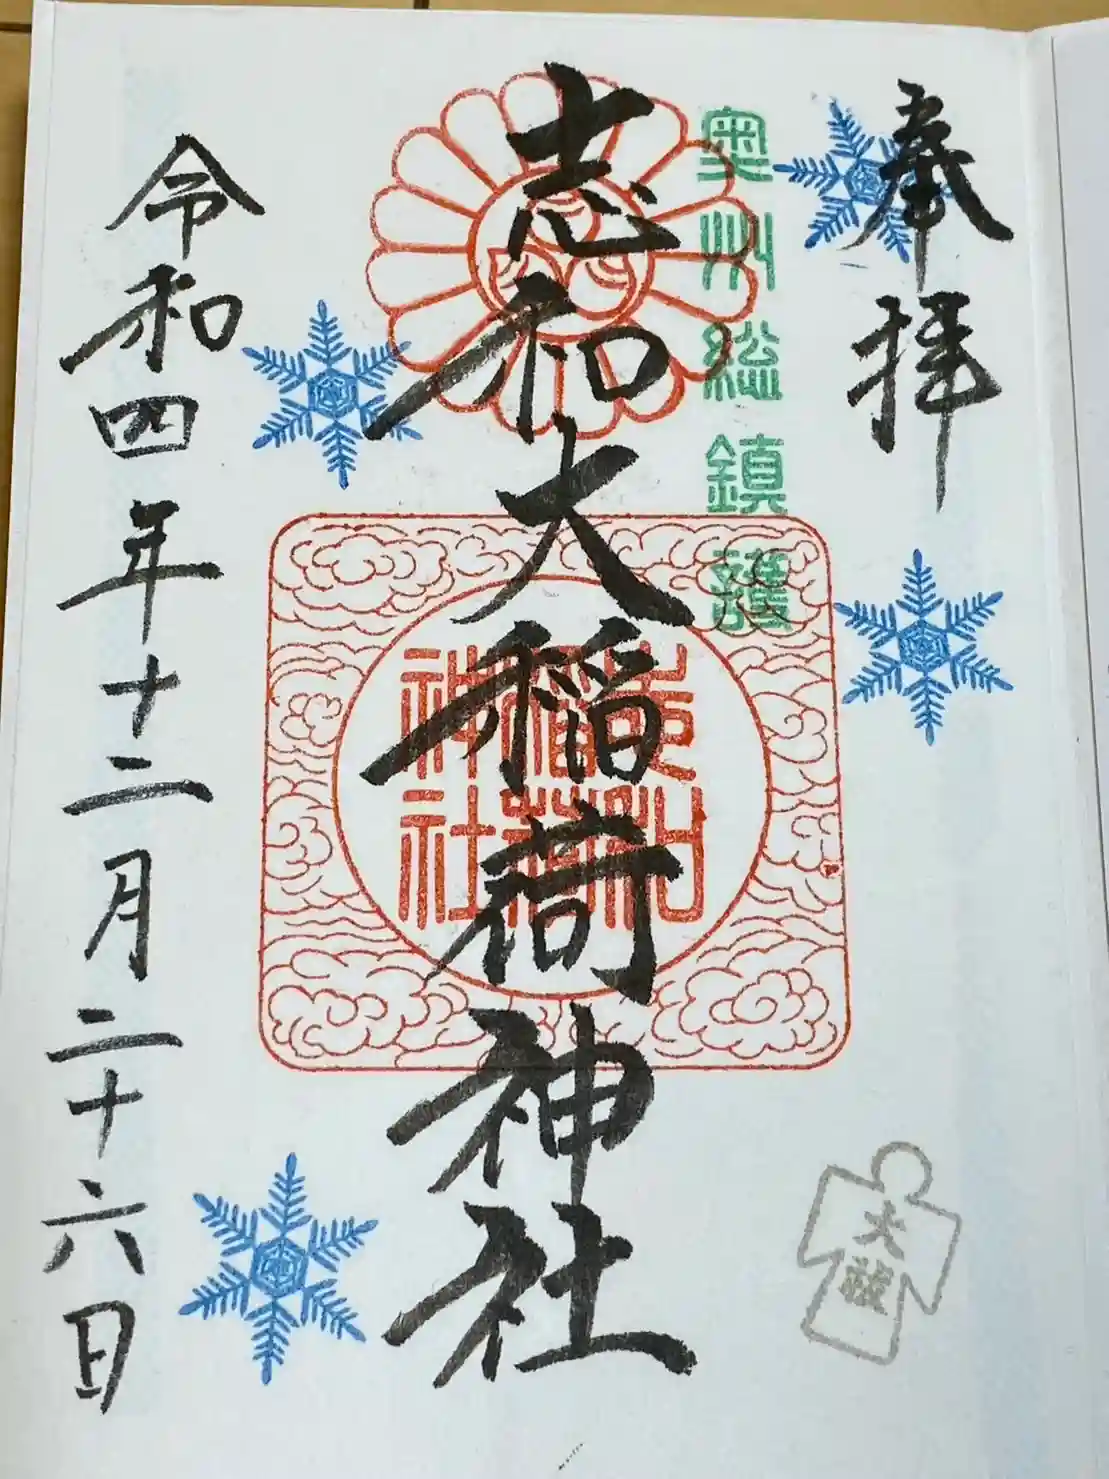 奉拝
奥州総鎮護
志和大稲荷神社
志和
稲荷
神社
令和四年十二月二十六日
大祓